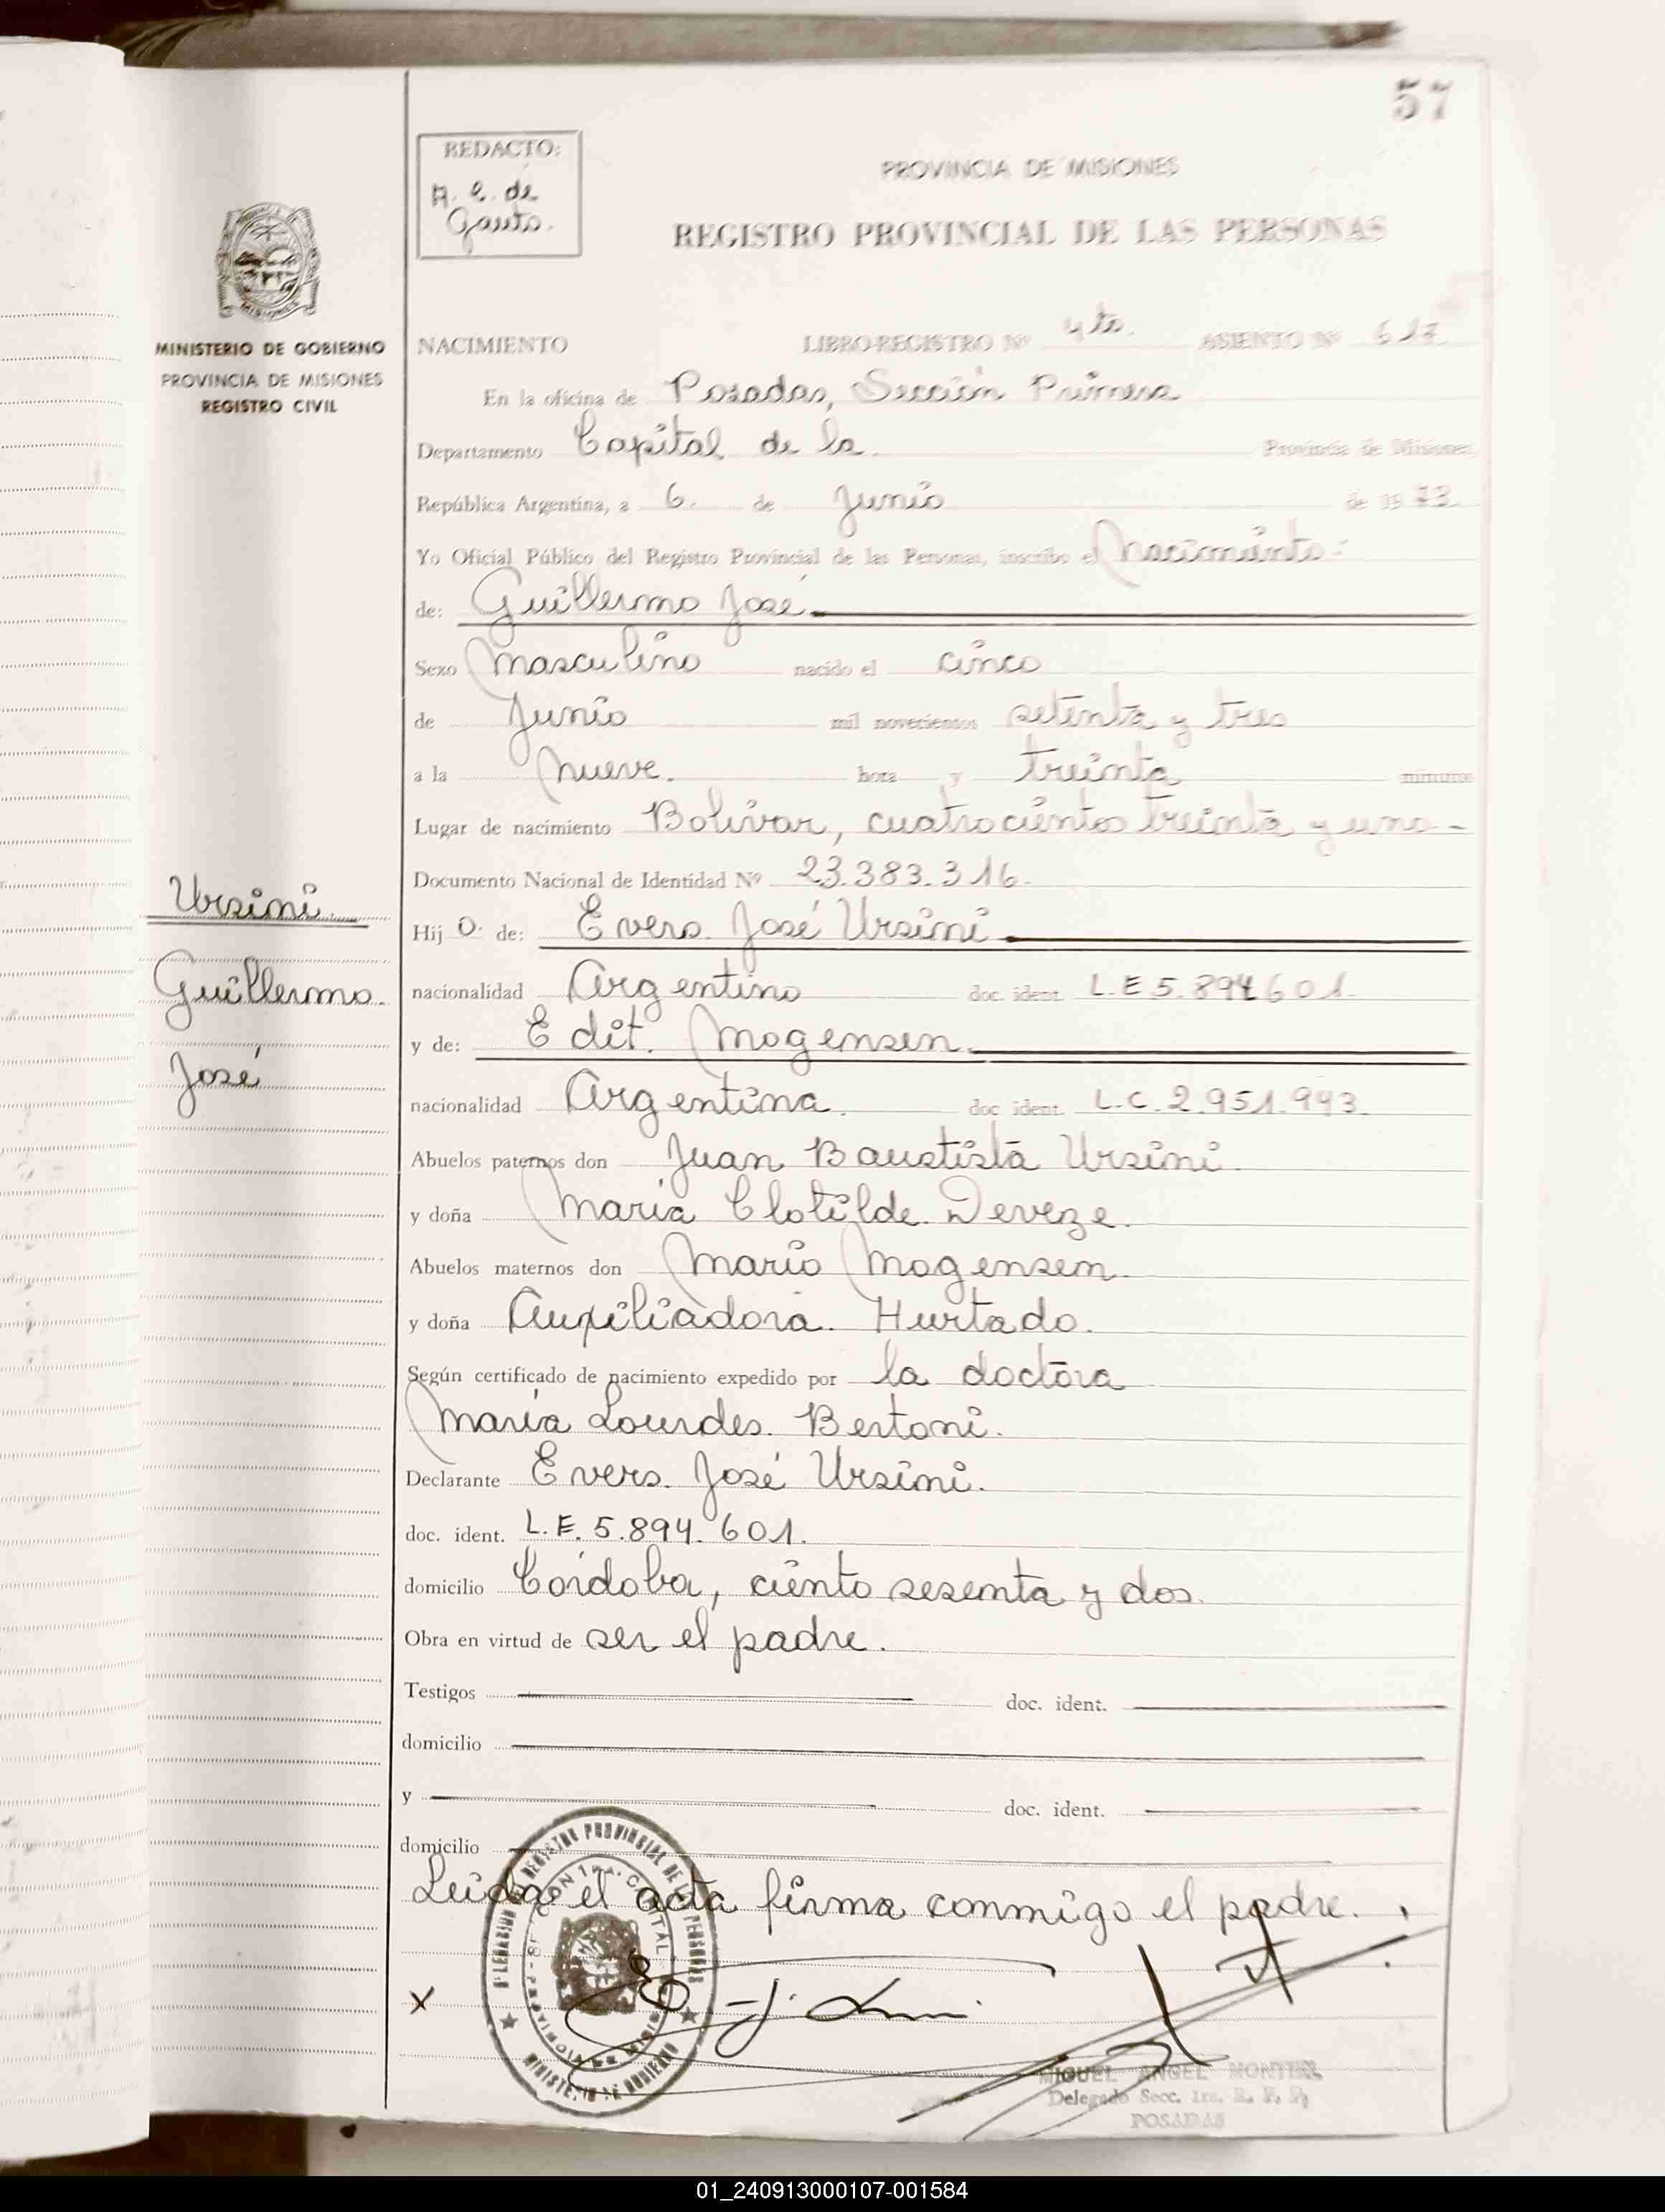 57
REDACTO:
A. C. de
Gauto.
PROVINCIA DE MISIONES
REGISTRO PROVINCIAL DE LAS PERSONAS
MINISTERIO DE GOBIERNO
PROVINCIA DE MISIONES
REGISTRO CIVIL
NACIMIENTO LIBRO-REGISTRO Nº 4to. ASIENTO Nº 617
En la oficina de Posadas, Sección Primera
Departamento Capital de la Provincia de Misiones,
República Argentina, a 6. de Junio de 1973
Yo Oficial Público del Registro Provincial de las Personas, inscribo el Nacimiento
de: Guillermo José
Sexo Masculino nacido el cinco
de Junio mil novecientos setenta y tres
a la nueve. hora y treinta minutos
Lugar de nacimiento Bolívar, cuatrocientos treinta y uno-
Documento Nacional de Identidad Nº 23.383.316.
Ursini
Guillermo
José
Hij o de: Evers José Ursini
nacionalidad Argentino doc. ident. L.E 5.894601
y de: Edit. Mogensen.
nacionalidad Argentina. doc. ident. L.C. 2.951.943
Abuelos paternos don Juan Baustista Ursini
y doña María Clotilde Deveze.
Abuelos maternos don Mario Mogensen
y doña Auxiliadora. Hurtado.
Según certificado de nacimiento expedido por la doctora
María Lourdes. Bertoni.
Declarante Evers. José Ursini.
doc. ident. L.E. 5.894.601.
domicilio Córdoba, ciento sesenta y dos.
Obra en virtud de ser el padre.
Testigos doc. ident.
domicilio
y doc. ident.
domicilio
Leida el acta firma conmigo el padre.
x
MIGUEL ANGEL MONTIEL
Delegado Secc. 1ra. R. P. P.
POSADAS
01_240913000107-001584